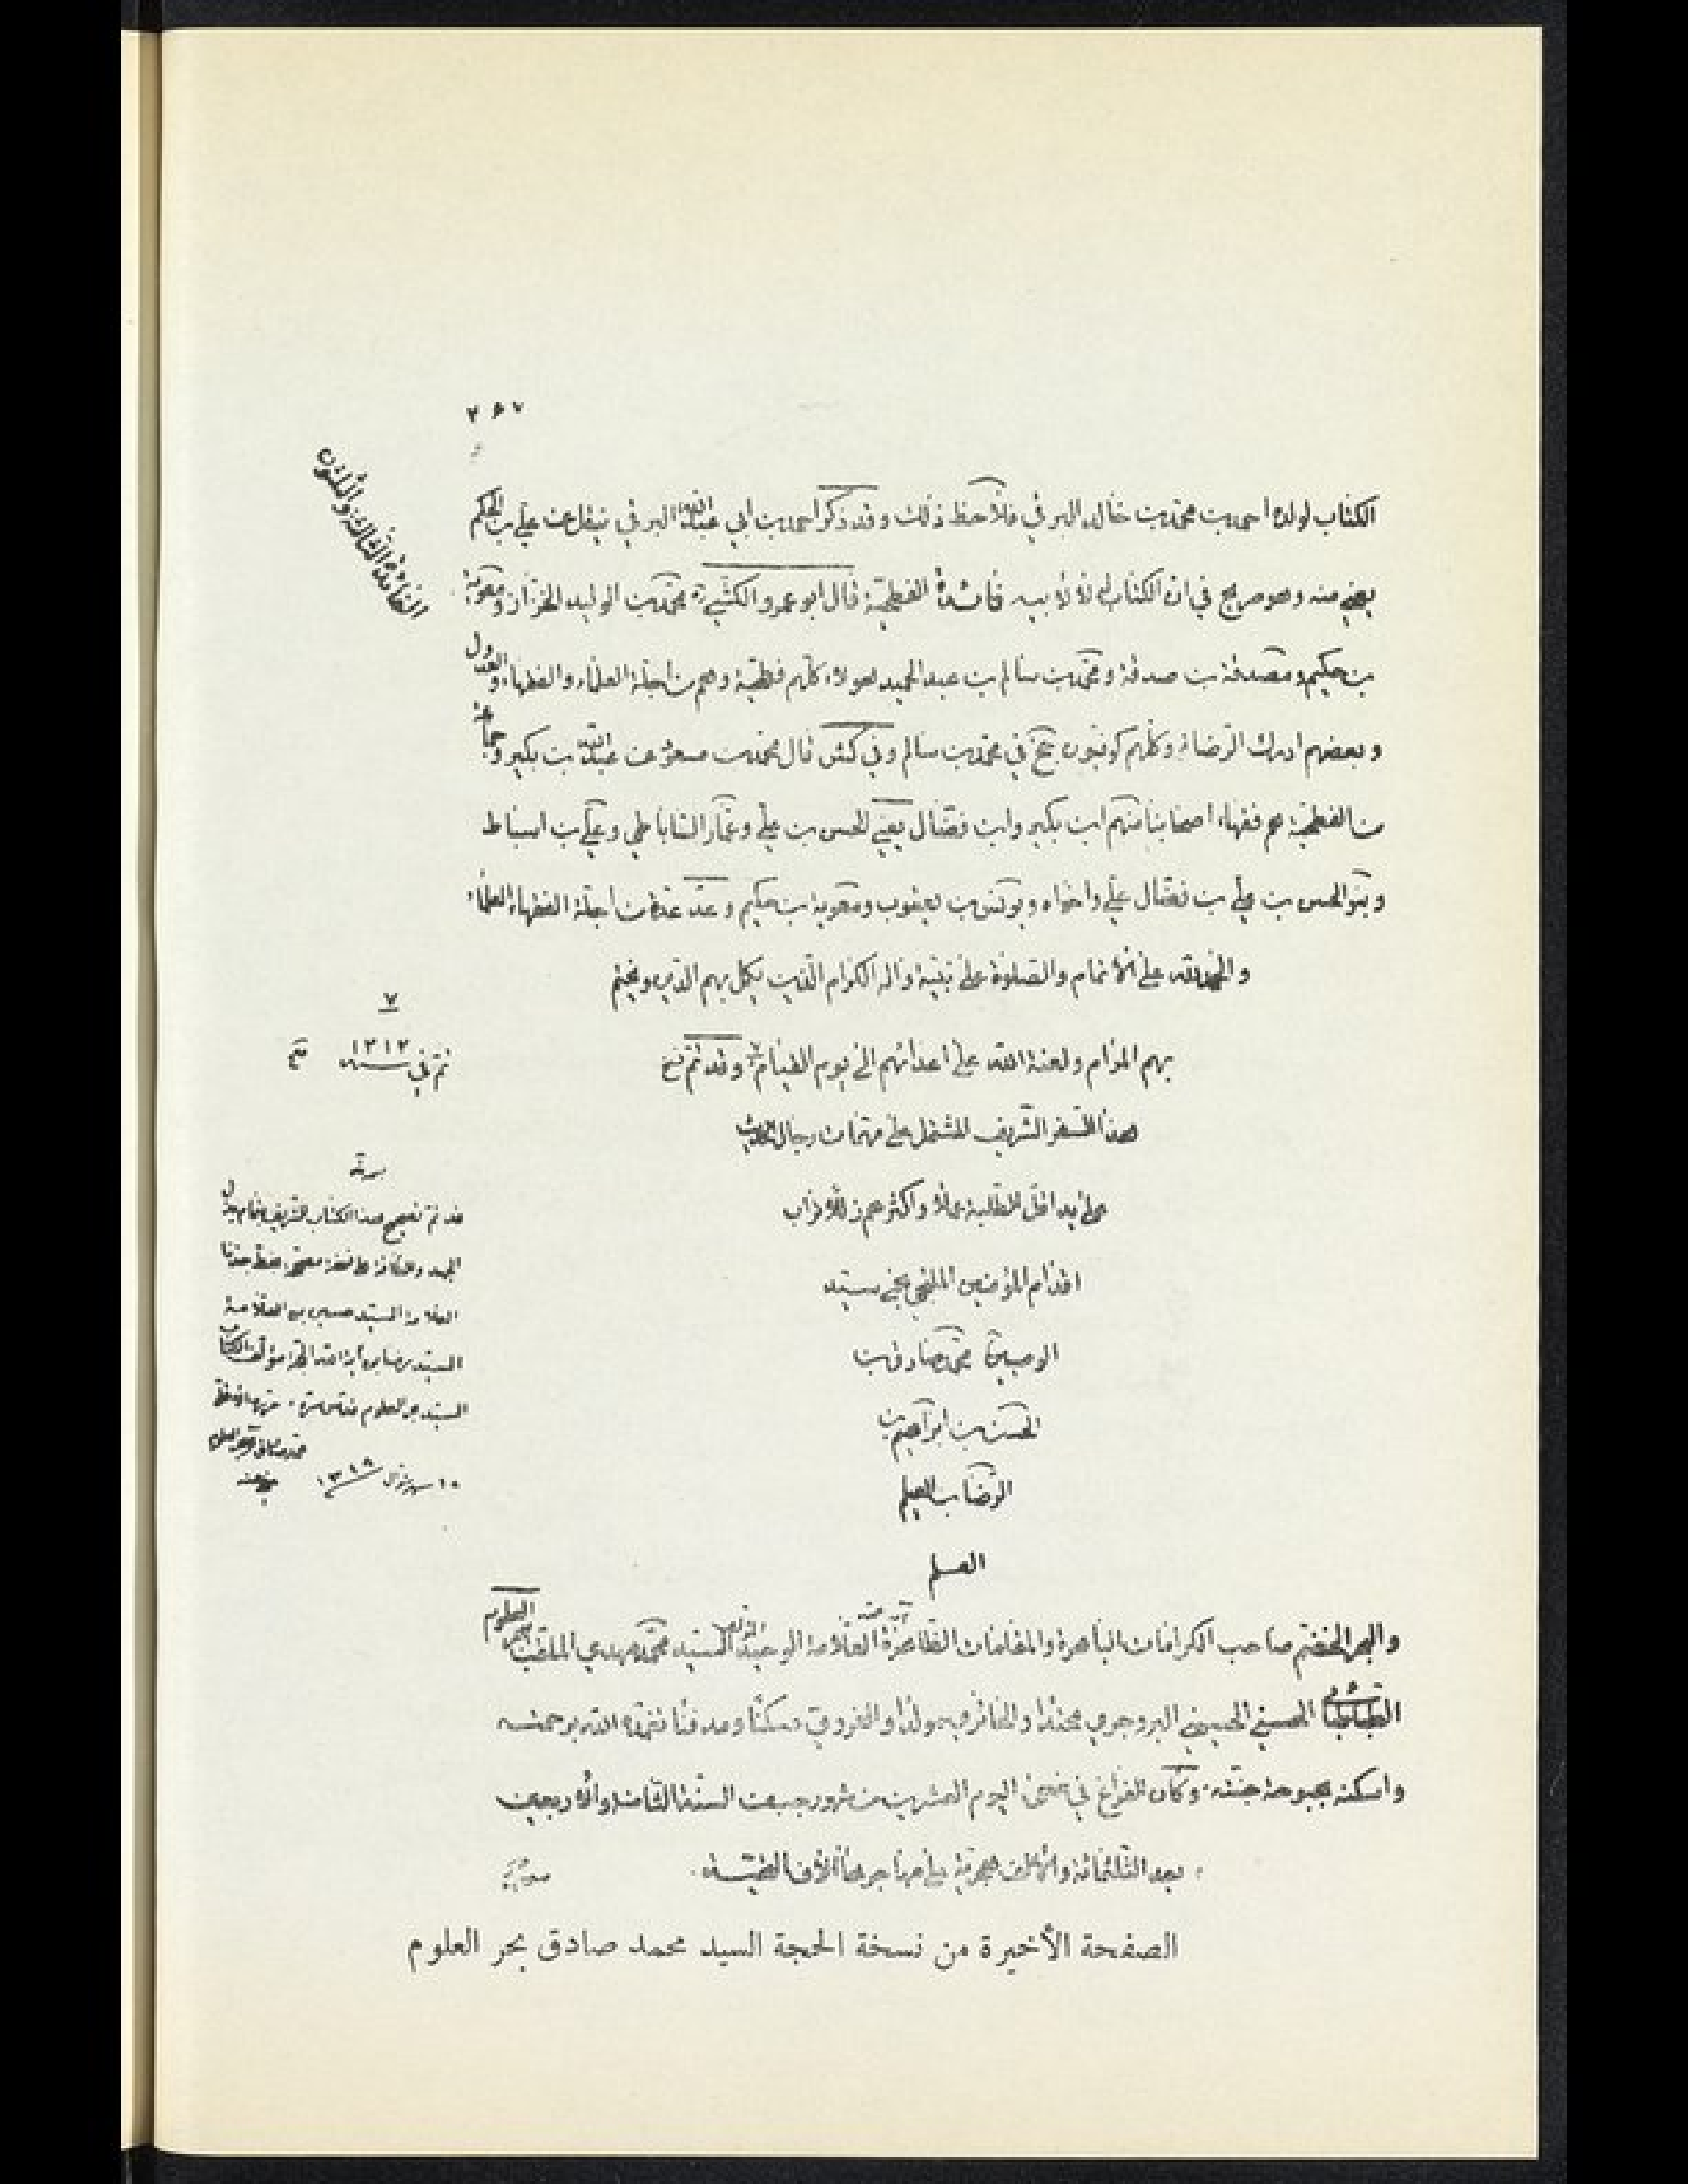 ٢٦٧
الفائدة الثالثة والثلثون
الكتاب لولده احمد بن محمد بن خالد البرقي فلاحظ ذلك وقد ذكر احمد بن ابي عبد الله البرقي ينقل عن علي بن الحكم
منه وهو صريح في ان الكتاب له لا لابيه فائدة الفطحية قال ابو عمرو الكشي ره محمد بن الوليد الخزاز ومعوية
بن حكيم ومصدق بن صدقة ومحمد بن سالم بن عبد الحميد هولاء كلهم فطحية وهم من اجلة العلماء والفقهاء والعدول
وبعضهم ادرك الرضا وكلهم كوفيون في محمد بن سالم وفي كش قال محمد بن مسعود عبد الله بن بكير وجماعة
من الفطحية هم فقهاء أصحابنا منهم ابن بكير وابن فضال يعني الحسن بن علي وعمار الساباطي وعلي بن اسباط
وبنو الحسن بن علي بن فضال علي واخواه ويونس بن يعقوب ومعوية ابن حكيم وعد عدة من اجلة الفقهاء العلماء
والحمد لله على الاتمام والصلوة على نبيه واله الكرام الذين يكمل بهم الدين ويختم
بهم المرام ولعنة الله على اعدائهم الى يوم القيام وقد تم نسخ
هذا السفر الشريف المشتمل على مهمات رجال الحديث
على يد اقل الطلبة عملا واكثرهم زللا تراب
اقدام المؤمنين الملتجي بجني سيد
الوصيين محمد صادق بن
الحسن بن ابراهيم بن
الرضا بن العيلم
العلم
والبحر الخضم صاحب الكرامات الباهرة والمقامات الظاهرة آية الله العلامة السيد محمد مهدي الملقب ببحر العلوم
الطباطبائي الحسني الحسيني البروجردي محتدا والحائري مولدا والغروي مسكنا ومدفنا تغمده الله برحمته
واسكنه بحبوحة جنته وكان الفراغ في ضحى اليوم العشرين من شهر رجب من السنة الثامنة والاربعين
بعد الثلثمائة والالف هجرية على مهاجرها الاف التحية
٧
تم في سنة ١٣١٢
قد تم تصحيح هذا الكتاب الشريف بتمام بذل
الجهد على نسخة مصححة بخط جدنا
العلامة السيد حسين بن العلامة
السيد رضا بن آية الله الحجة مؤلف الكتاب
السيد بحر العلوم قدس سره
محمد صادق بحر العلوم
عفي عنه
الصفحة الأخيرة من نسخة الحجة السيد محمد صادق بحر العلوم